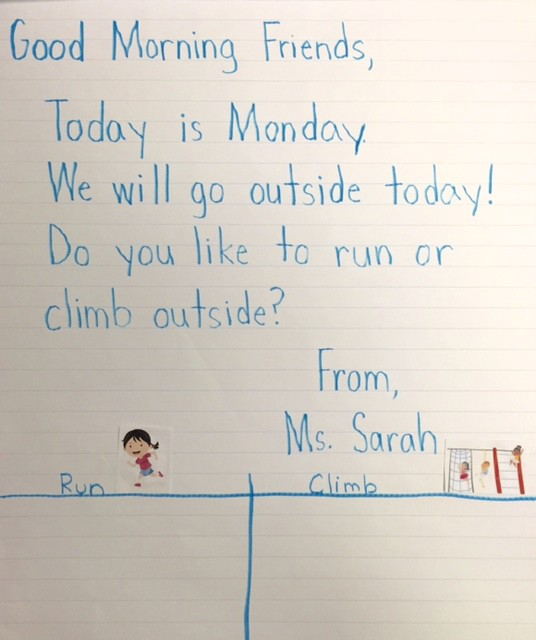 Good Morning Friends,
Today is Monday.
We will go outside today!
Do you like to run or
climb outside?
From,
Ms. Sarah
Run
Climb